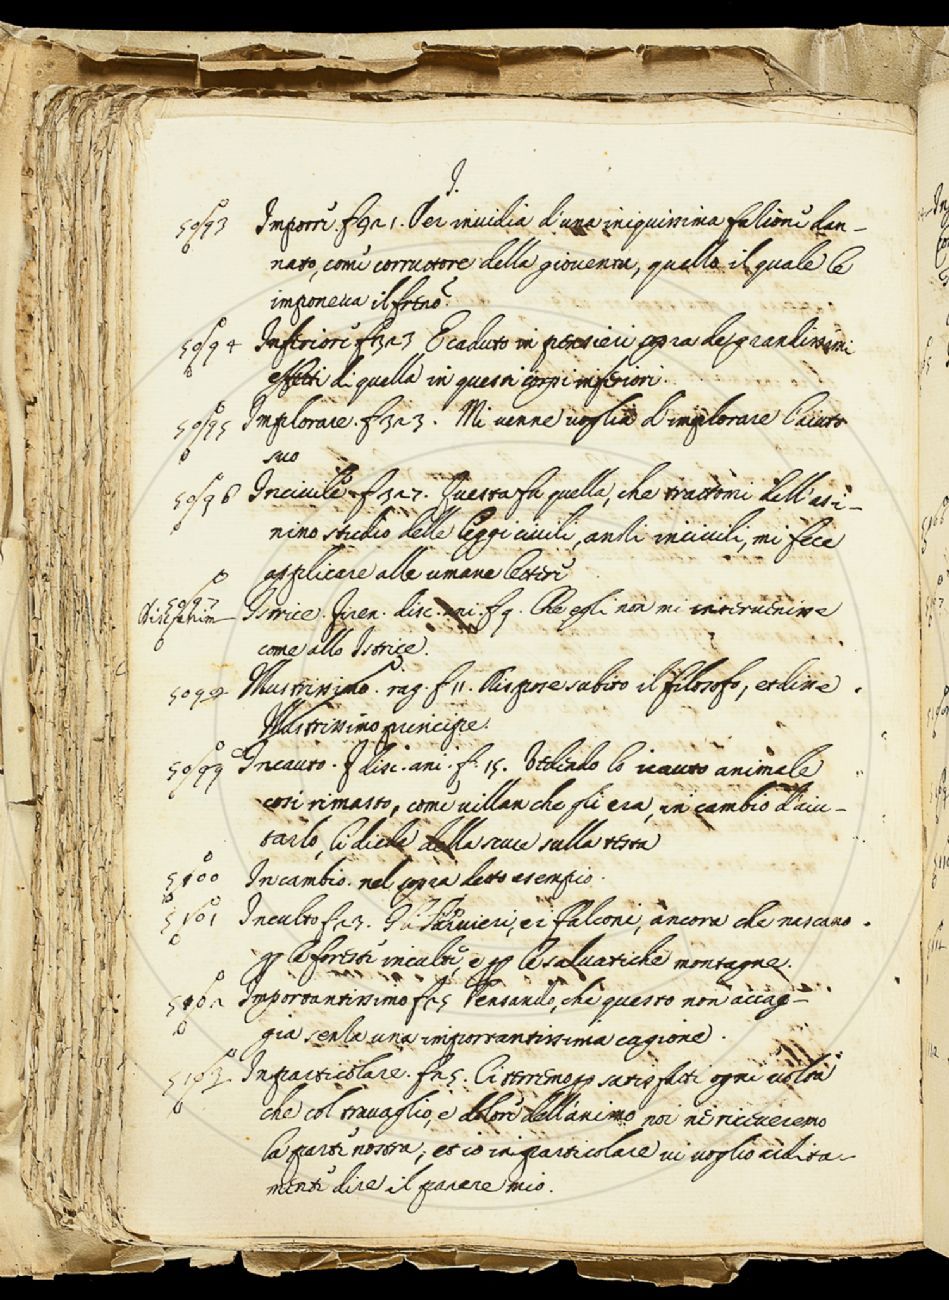 I.
5093 Imporre f. 321. Per invidia d'una iniquissima fatione dan-
nato, come corruttore della gioventu, quello il quale le
imponeva il freno.
5094 Inferiore f. 323 E caduto in pensieri sopra de grandissimi
effetti di quella in questi corpi inferiori.
5095 Implorare. f. 323. Mi venne voglia d'implorare l'aiuto
suo
5096 Incivile. f. 327. Questa fu quella, che trattomi dell'asi-
nino studio delle leggi civili, anzi incivili, mi fece
applicare alle umane lettere
5097 Istrice. Firen. disc. ani. f. 9. Che egli non mi intervenisse
come allo Istrice.
5098 Illustrissimo. rag. f. 11. Rispose subito il filosofo, et disse
Illustrissimo principe.
5099 Incauto. disc. ani. f. 15. Vedendo lo icauto animale
cosi rimasto, come villan che gli era, in cambio d'aiu-
tarlo, li diede della scure sulla testa
5100 In cambio. nel sopra detto esempio.
5101 Inculto f. 23. Gli Sparvieri, e i falconi, ancora che nascano
p le foreste inculte, e p le salvatiche montagne.
5102 Importantissimo f. 25 Pensando, che questo non accag-
gia senza una importantissima cagione.
5103 In particolare. f. 25. Ci terremo p satisfatti ogni volta
che col travaglio, e dolore dell'animo noi ne riceveremo
la parte nostra, et io in particolare vi voglio ardita-
mente dire il parere mio.